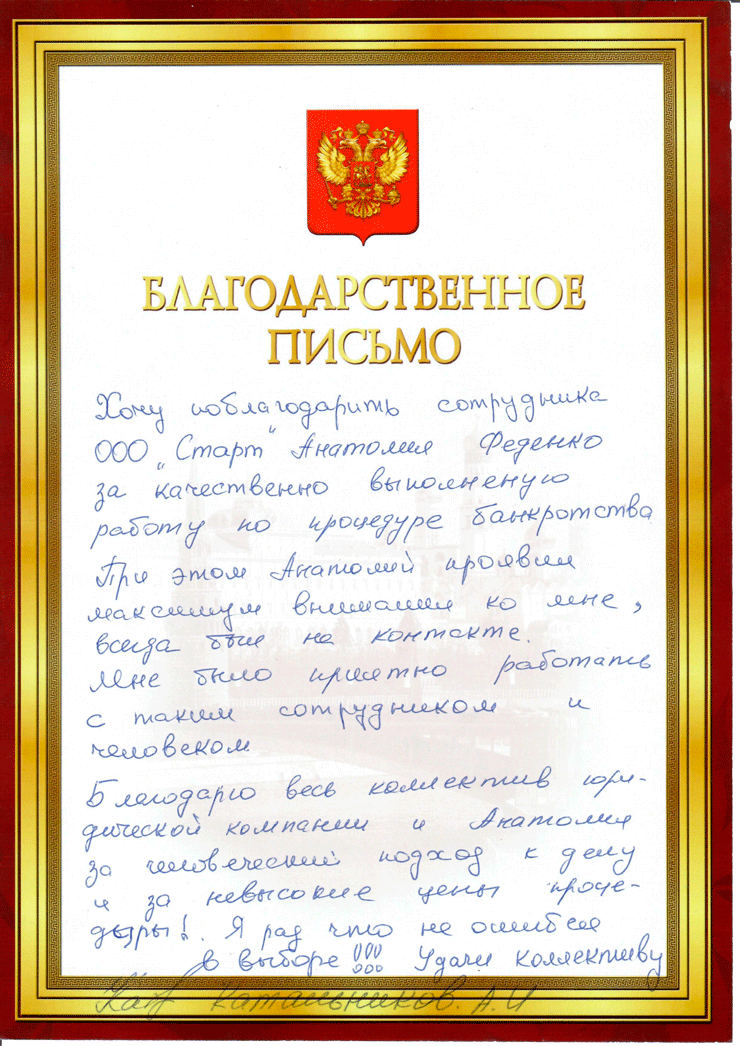 БЛАГОДАРСТВЕННОЕ
ПИСЬМО
Хочу поблагодарить сотрудника
ООО „Старт" Анатолия Феденко
за качественно выполненую
работу по процедуре банкротства
При этом Анатолий проявил
максимум внимания ко мне,
всегда был на контакте.
Мне было приятно работать
с таким сотрудником и
человеком
Благодарю весь коллектив юри-
дической компании и Анатолия
за человеческий подход к делу
и за невысокие цены проце-
дуры! Я рад что не ошибся
в выборе !!! Удачи коллективу
Катальников. А.И